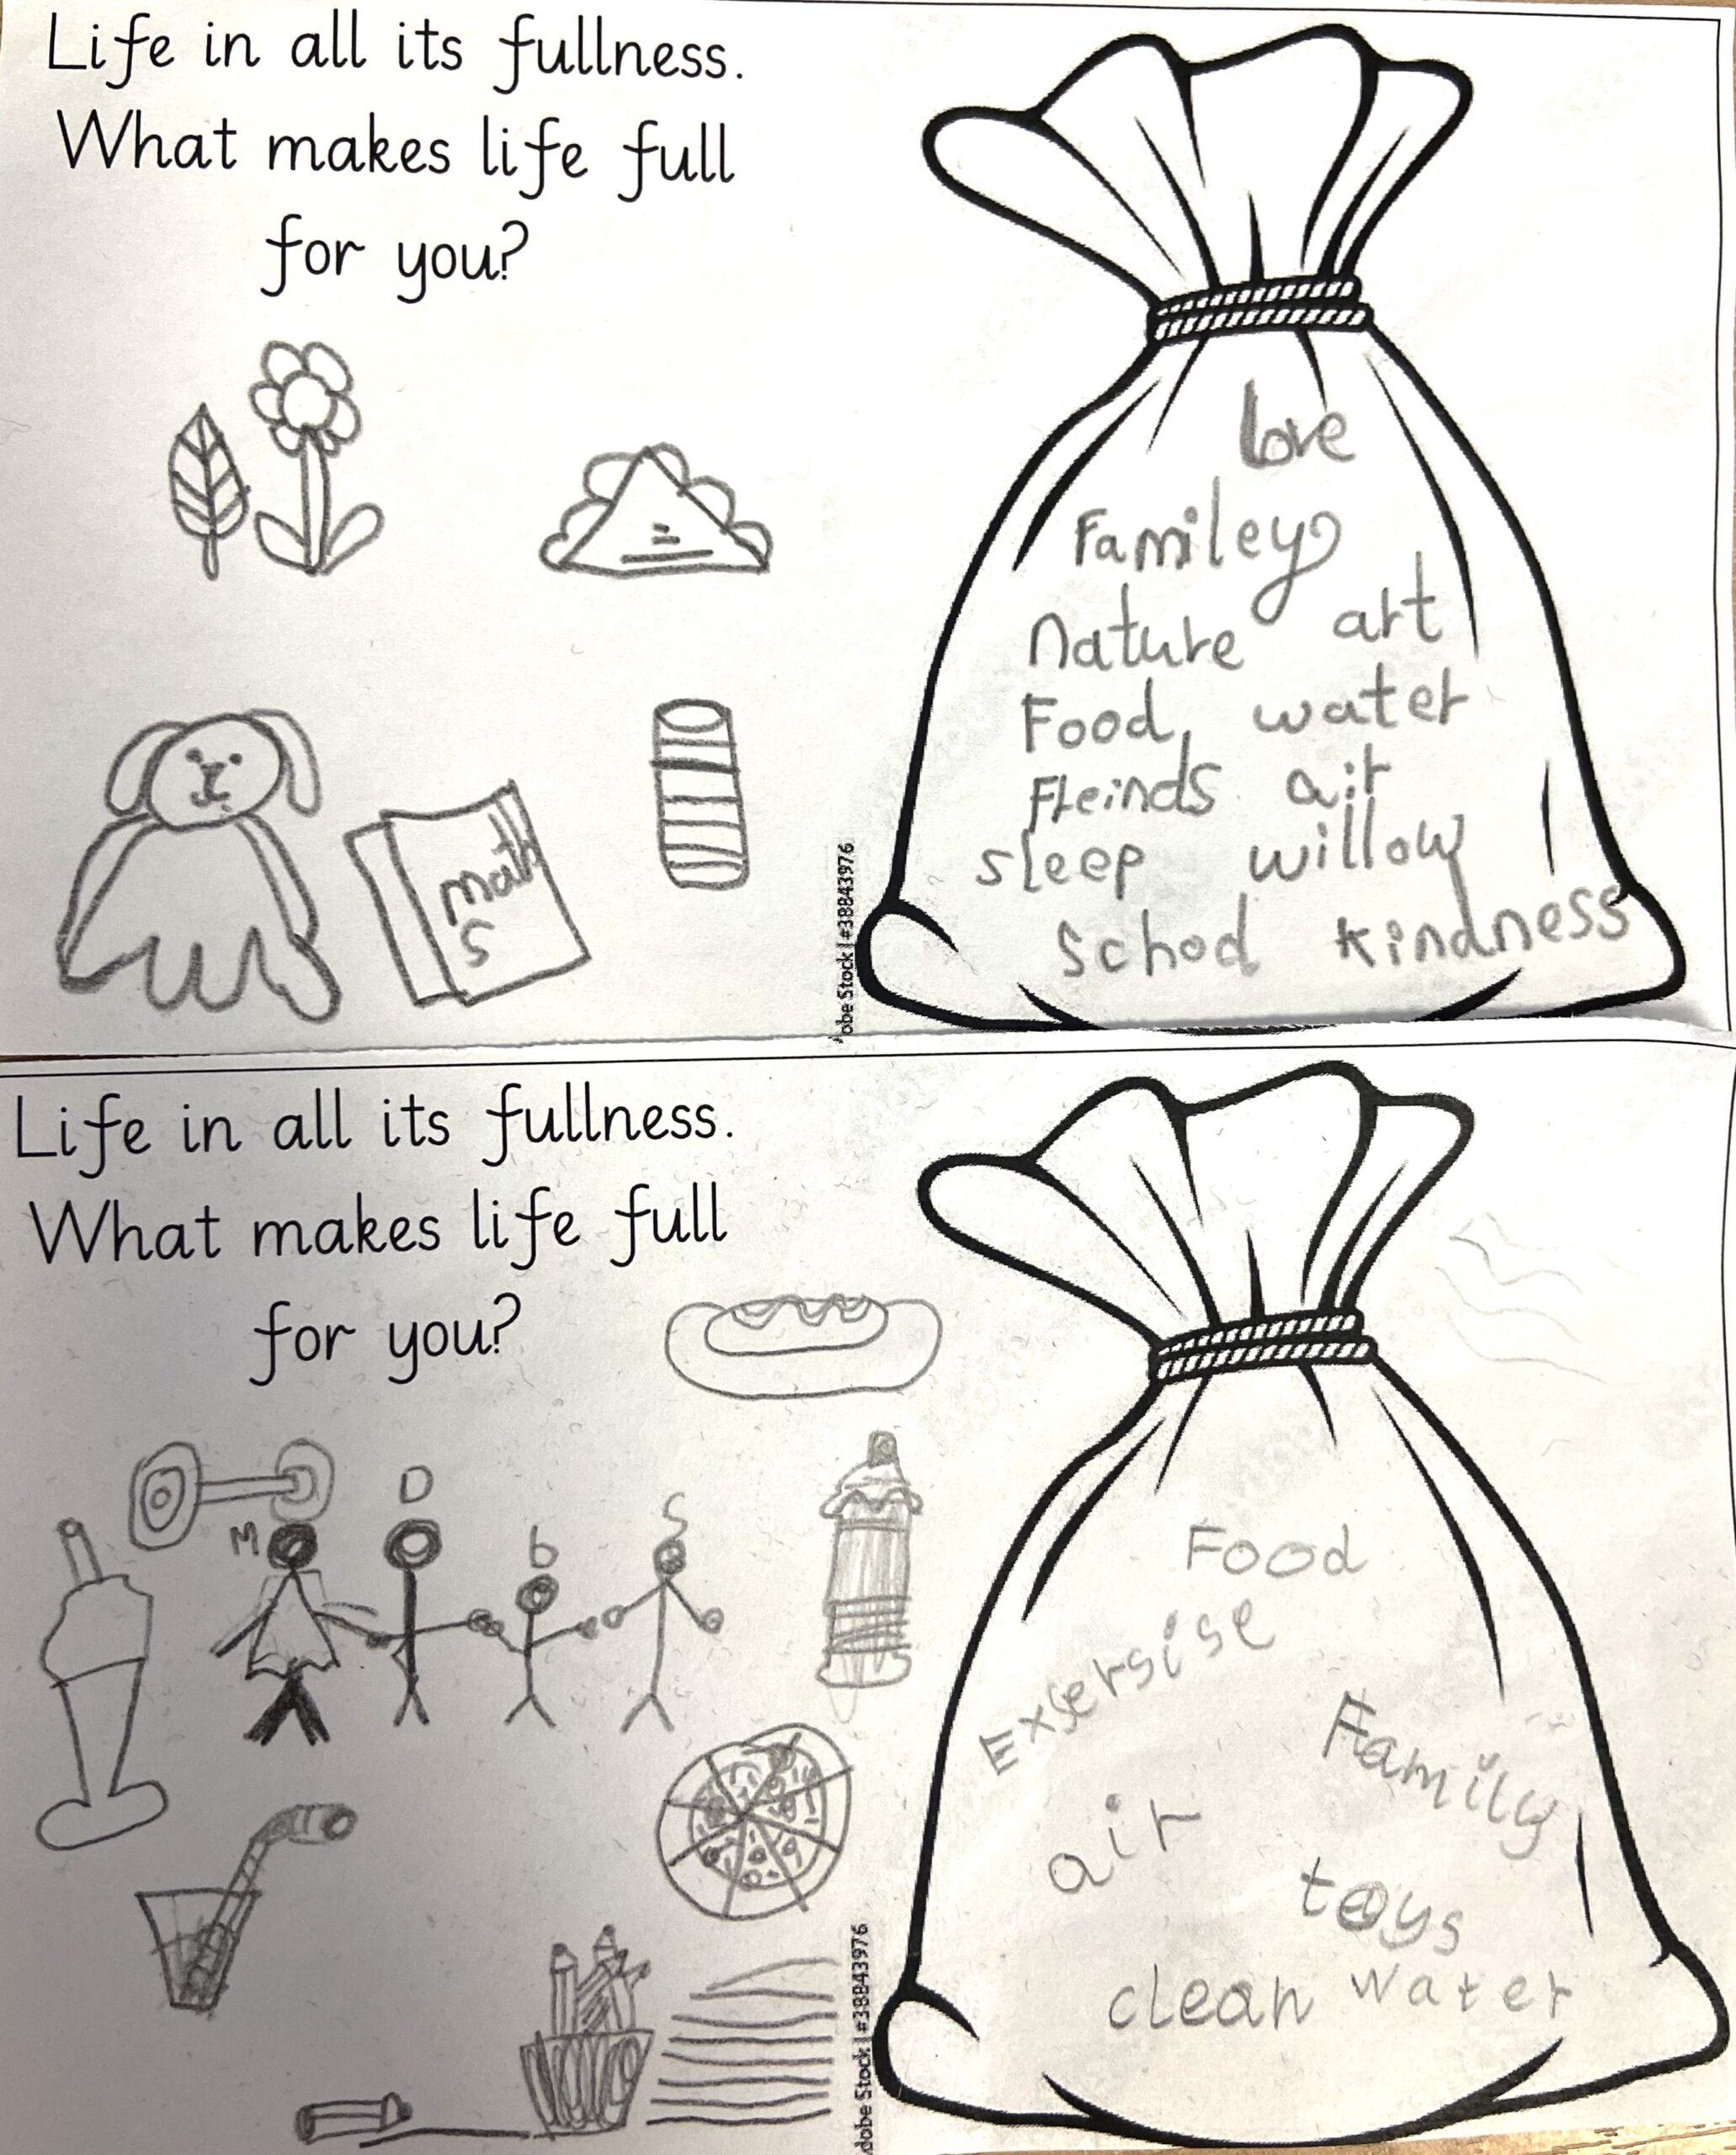 Life in all its fullness.
What makes life full
for you?
math
s
love
Familey
nature art
Food water
Freinds air
sleep willow
school kindness
obe Stock | #38843976
Life in all its fullness.
What makes life full
for you?
M D b S
Food
Exsersise
Family
air
toys
clean water
dobe Stock | #38843976